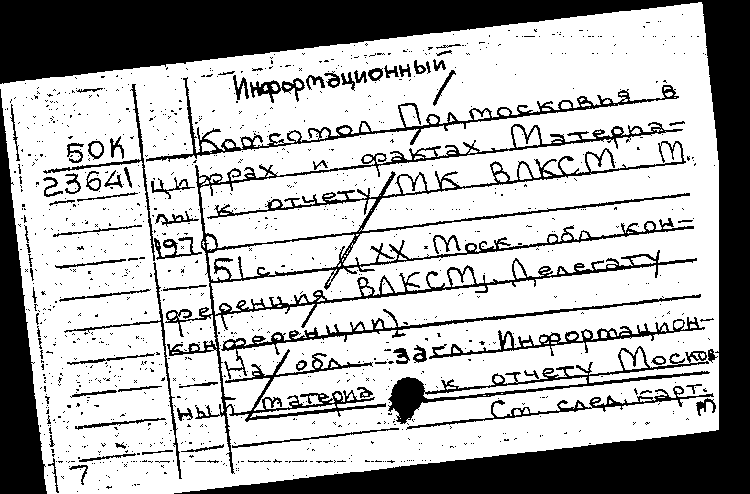 Информационный
50К
23641
Комсомол Подмосковья в
цифрах и фактах. Материа-
лы к отчету МК ВЛКСМ. М.
1970
51 с. (XX Моск. обл. кон-
ференция ВЛКСМ. Делегату
конференции).
На обл. загл.: Информацион-
ный материа к отчету Москов
См. след. карт.
7